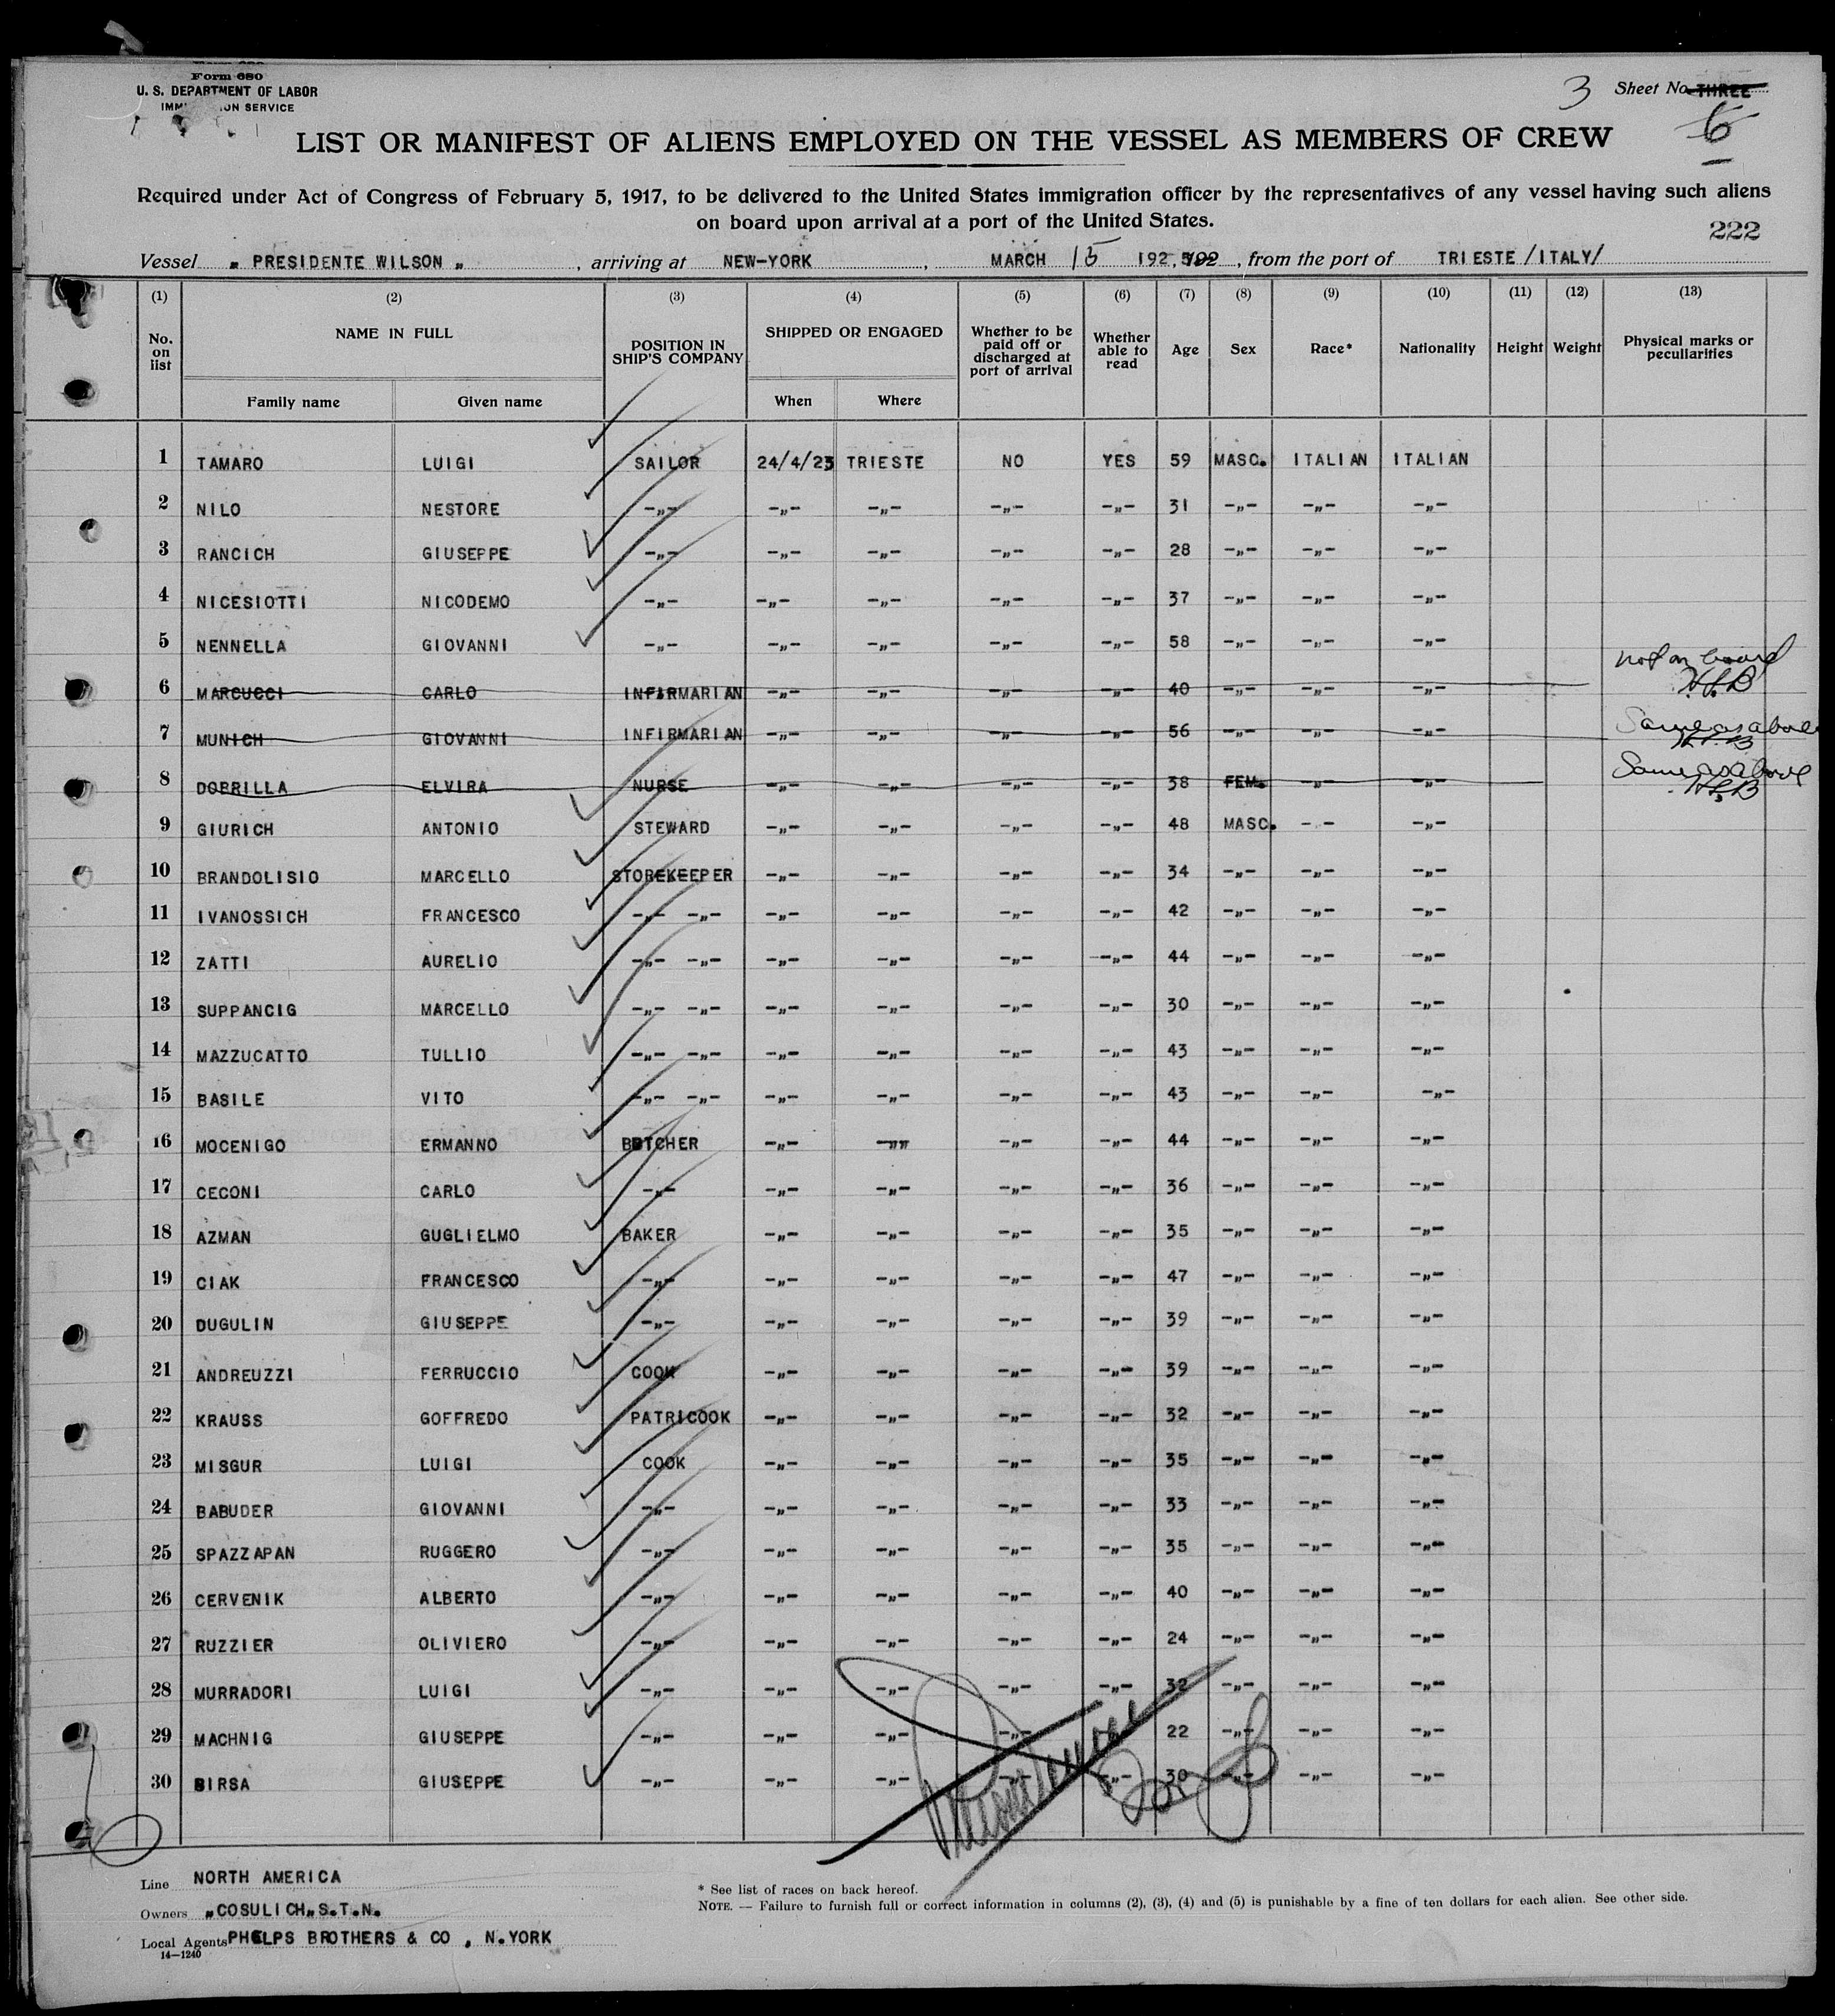 Form 680
U. S. DEPARTMENT OF LABOR
IMMI ON SERVICE
3 Sheet No. THREE
6
LIST OR MANIFEST OF ALIENS EMPLOYED ON THE VESSEL AS MEMBERS OF CREW
Required under Act of Congress of February 5, 1917, to be delivered to the United States immigration officer by the representatives of any vessel having such aliens
on board upon arrival at a port of the United States.
222
Vessel „ PRESIDENTE WILSON „ , arriving at NEW-YORK , MARCH 15 192 , from the port of TRIESTE /ITALY/
(1) (2) (3) (4) (5) (6) (7) (8) (9) (10) (11) (12) (13)
No. on list NAME IN FULL Family name Given name POSITION IN SHIP'S COMPANY SHIPPED OR ENGAGED When Where Whether to be paid off or discharged at port of arrival Whether able to read Age Sex Race* Nationality Height Weight Physical marks or peculiarities
1 TAMARO LUIGI SAILOR 24/4/23 TRIESTE NO YES 59 MASC. ITALIAN ITALIAN
2 NILO NESTORE -„- -„- -„- -„- -„- 31 -„- -„- -„-
3 RANCICH GIUSEPPE -„- -„- -„- -„- -„- 28 -„- -„- -„-
4 NICESIOTTI NICODEMO -„- -„- -„- -„- -„- 37 -„- -„- -„-
5 NENNELLA GIOVANNI -„- -„- -„- -„- -„- 58 -„- -„- -„-
6 MARCUCCI CARLO INFIRMARIAN -„- -„- -„- -„- 40 -„- -„- -„- not on board H.L.B
7 MUNICH GIOVANNI INFIRMARIAN -„- -„- -„- -„- 56 -„- -„- -„- Same as above H.L.B.
8 DOBRILLA ELVIRA NURSE -„- -„- -„- -„- 38 FEM. -„- -„- Same as above H.L.B
9 GIURICH ANTONIO STEWARD -„- -„- -„- -„- 48 MASC. - - -„-
10 BRANDOLISIO MARCELLO STOREKEEPER -„- -„- -„- -„- 34 -„- -„- -„-
11 IVANOSSICH FRANCESCO -„- -„- -„- -„- -„- -„- 42 -„- -„- -„-
12 ZATTI AURELIO -„- -„- -„- -„- -„- -„- 44 -„- -„- -„-
13 SUPPANCIG MARCELLO -„- -„- -„- -„- -„- -„- 30 -„- -„- -„-
14 MAZZUCATTO TULLIO -„- -„- -„- -„- -„- -„- 43 -„- -„- -„-
15 BASILE VITO -„- -„- -„- -„- -„- -„- 43 -„- -„- -„-
16 MOCENIGO ERMANNO BUTCHER -„- -„„ -„- -„- 44 -„- -„- -„-
17 CECONI CARLO -„- -„- -„- -„- -„- 36 -„- -„- -„-
18 AZMAN GUGLIELMO BAKER -„- -„- -„- -„- 35 -„- -„- -„-
19 CIAK FRANCESCO -„- -„- -„- -„- -„- 47 -„- -„- -„-
20 DUGULIN GIUSEPPE -„- -„- -„- -„- -„- 39 -„- -„- -„-
21 ANDREUZZI FERRUCCIO COOK -„- -„- -„- -„- 39 -„- -„- -„-
22 KRAUSS GOFFREDO PATRICOOK -„- -„- -„- -„- 32 -„- -„- -„-
23 MISGUR LUIGI COOK -„- -„- -„- -„- 35 -„- -„- -„-
24 BABUDER GIOVANNI -„- -„- -„- -„- -„- 33 -„- -„- -„-
25 SPAZZAPAN RUGGERO -„- -„- -„- -„- -„- 35 -„- -„- -„-
26 CERVENIK ALBERTO -„- -„- -„- -„- -„- 40 -„- -„- -„-
27 RUZZIER OLIVIERO -„- -„- -„- -„- -„- 24 -„- -„- -„-
28 MURRADORI LUIGI -„- -„- -„- -„- -„- 32 -„- -„- -„-
29 MACHNIG GIUSEPPE -„- -„- -„- -„- -„- 22 -„- -„- -„-
30 BIRSA GIUSEPPE -„- -„- -„- -„- -„- 30 -„- -„- -„-
Line NORTH AMERICA
Owners „COSULICH„S.T.N.
Local Agents PHELPS BROTHERS & CO , N.YORK
14—1240
* See list of races on back hereof.
NOTE. — Failure to furnish full or correct information in columns (2), (3), (4) and (5) is punishable by a fine of ten dollars for each alien. See other side.